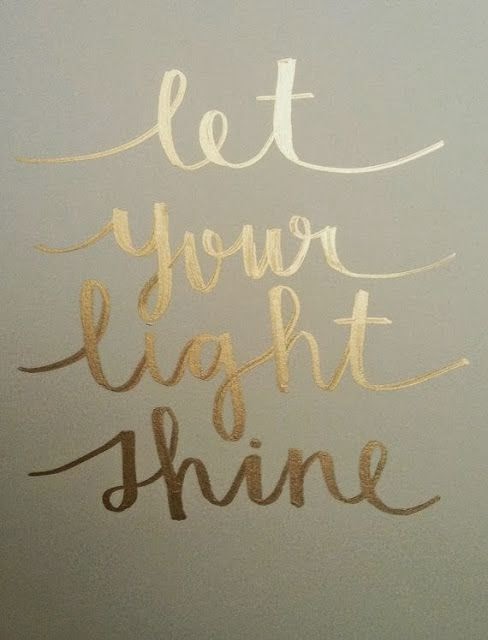 let
your
light
shine